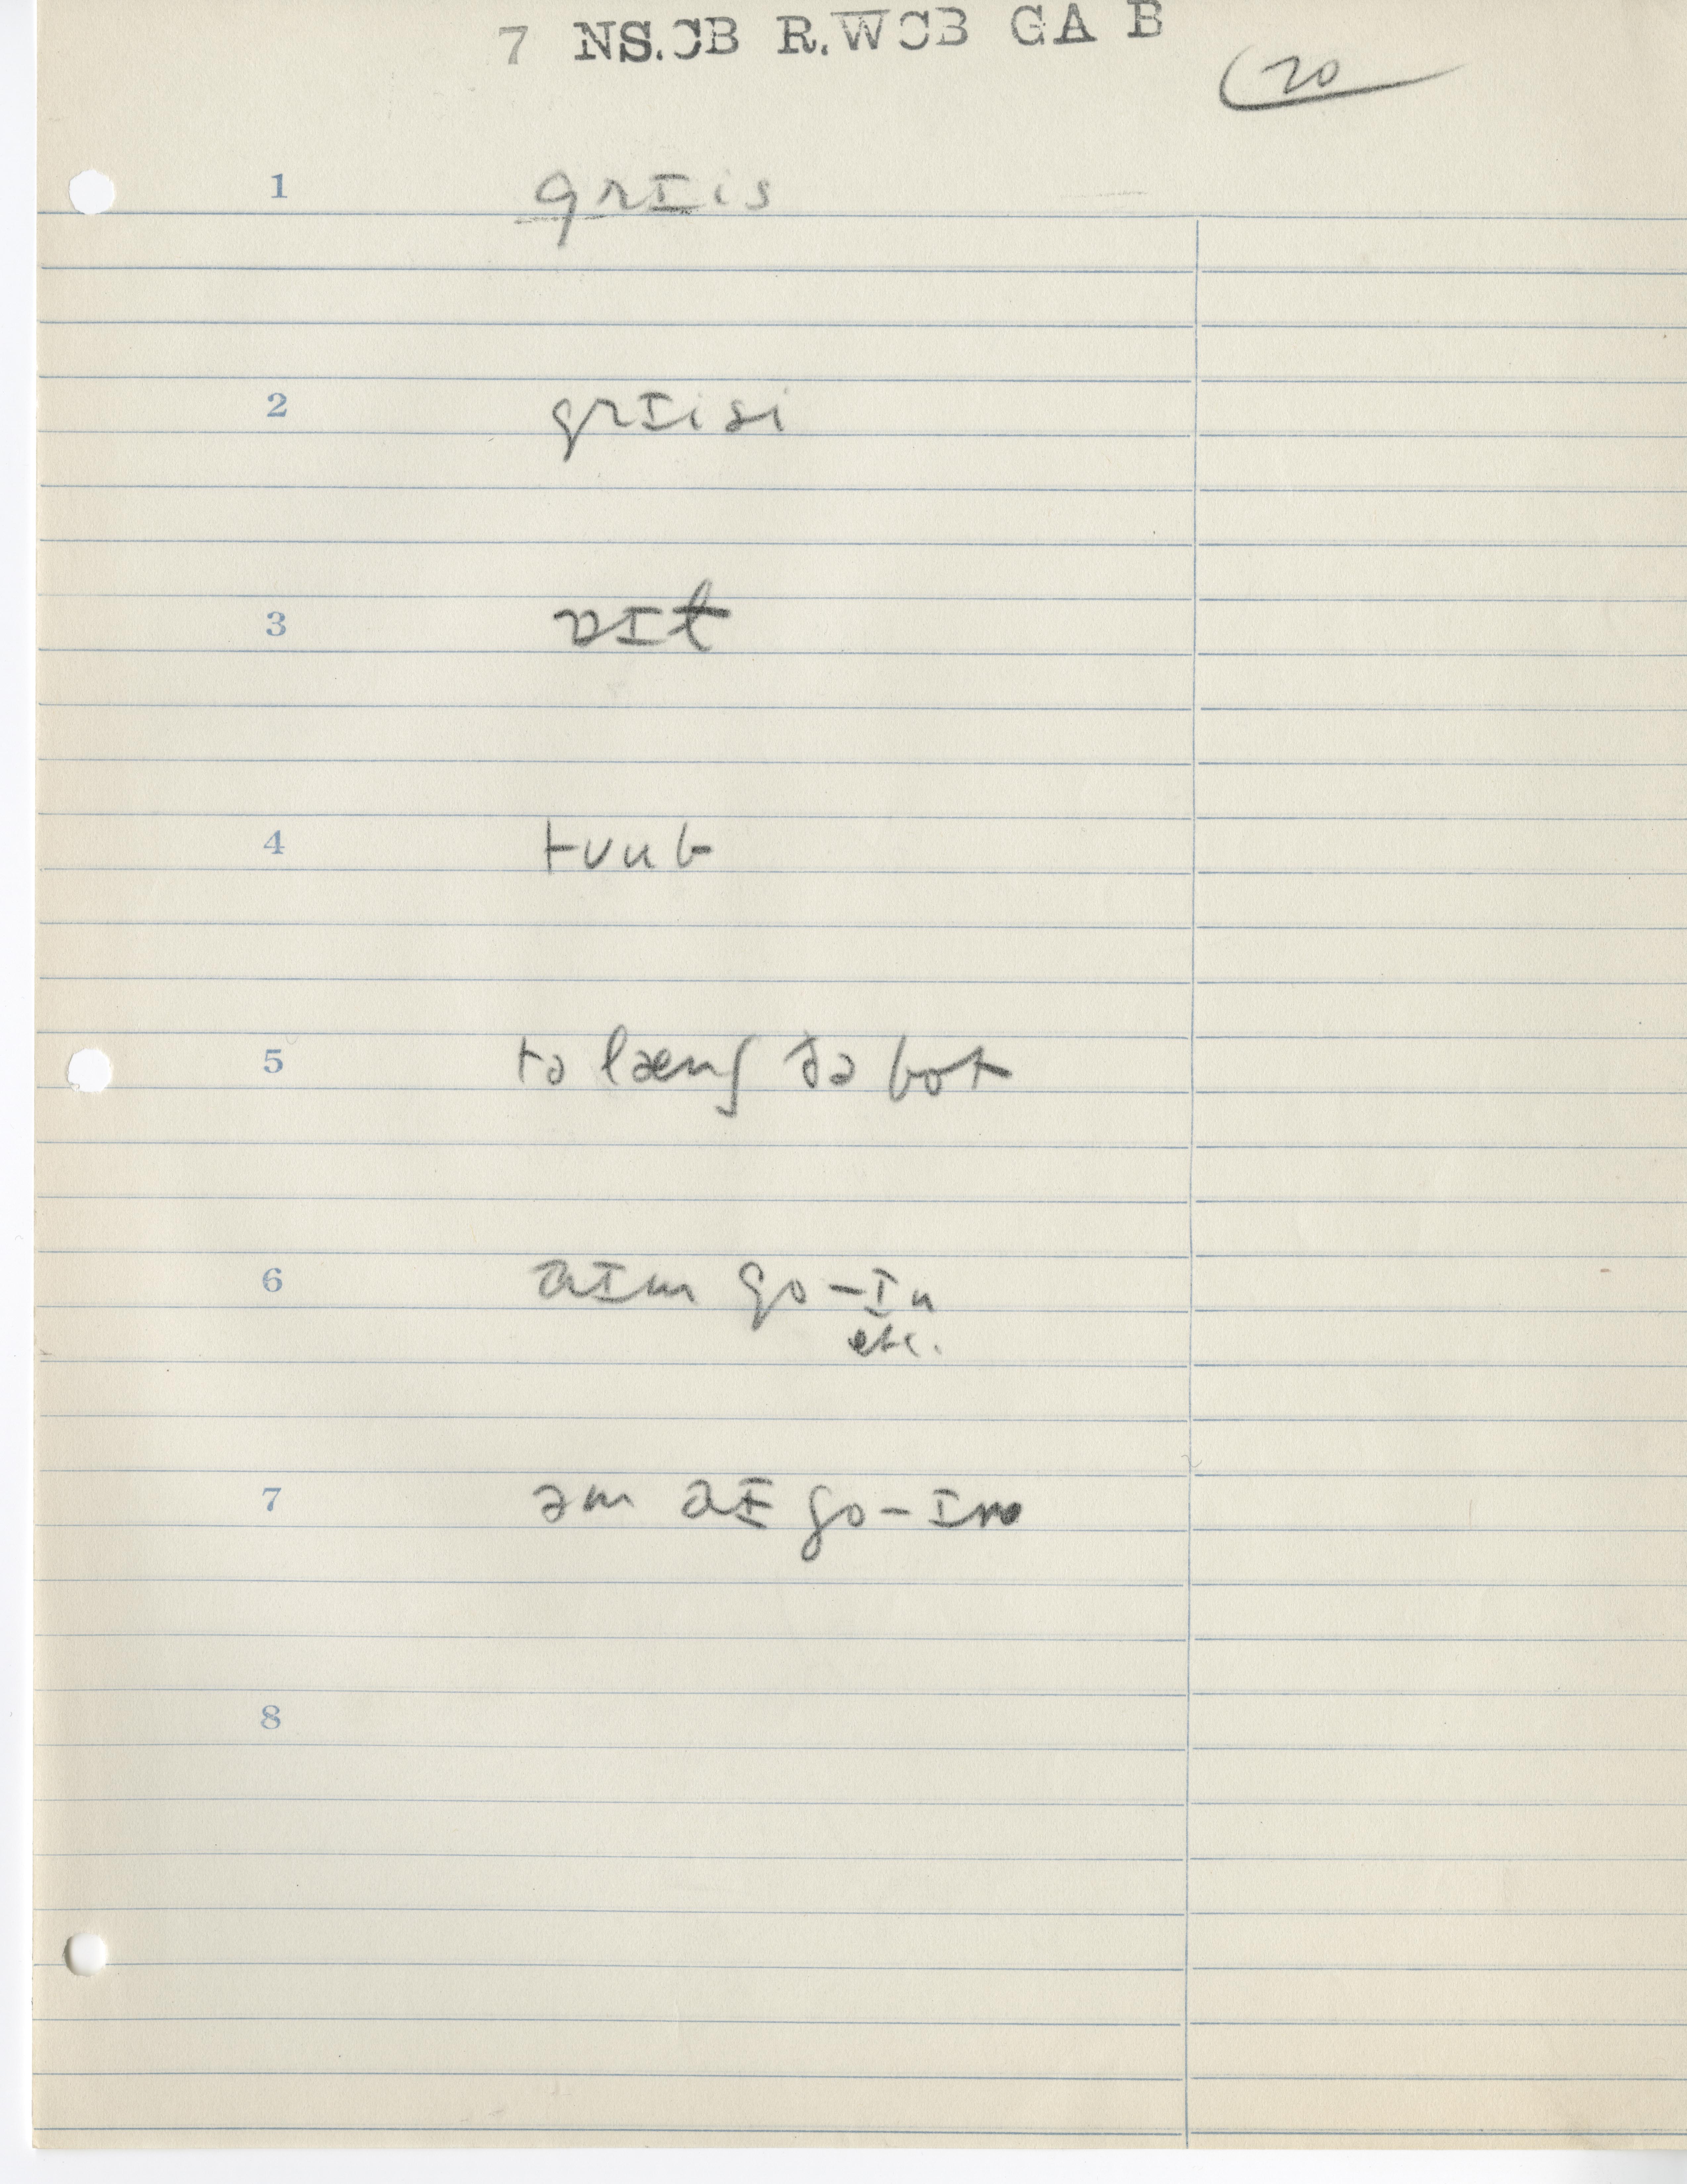 7 NS.CB R.WCB GA B
20
1 grɪis
2 grɪisi
3
4 tʊub
5 tə læng ðə bot
6 aɪm go-ɪn
etc.
7 əm aɪ go-ɪn
8